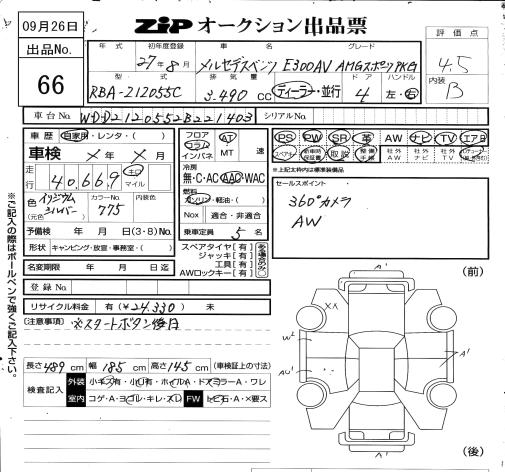 09月26日
出品No.
66
ZIP オークション出品票
年式 初年度登録 車名 グレード
27年8月 メルセデスベンツ E300AV AMGスポーツPKG
型式 排気量 ドア ハンドル
RBA-212055C 3.490 cc ディーラー・並行 4 左・右
評価点
4.5
内装
B
車台No. WDD2120552B221403 シリアルNo.
車歴 自家用・レンタ・( )
車検 × 年 × 月
走行 40,669 km マイル
色 (元色) イリジウムシルバー カラーNo. 775 内装色
予備検 年 月 日(3・8)No.
形状 キャンピング・放宣・事務室・( )
名変期限 年 月 日迄
登録No.
リサイクル料金 有(¥24,330) 未
フロア コラム インパネ AT MT 速
冷房
無・C・AC AAC・WAC
燃料
ガソリン・軽油・( )
Nox 適合・非適合
乗車定員 5 名
スペアタイヤ[有]
ジャッキ[有]
工具[有]
AWロックキー[有]
ある場合のみ○
PS PW SR 革 AW ナビ TV エアB
スペアキー 新車時保証書 取説 整備手帳 社外AW 社外ナビ 社外TV
※上記太枠内は標準装備品
セールスポイント
360°カメラ
AW
[注意事項] ※スタートボタン後日
長さ489cm 幅185cm 高さ145cm (車検証上の寸法)
検査記入 外装 小キズ有・小凹有・ホイルA・ドアミラーA・ワレ
室内 コゲ・A・ヨゴレ・キレ・スレ FW トビ石・A・×要ス
※ご記入の際はボールペンで強くご記入下さい。
(前)
A'
XX
W2
AU'
A'
A'
(後)